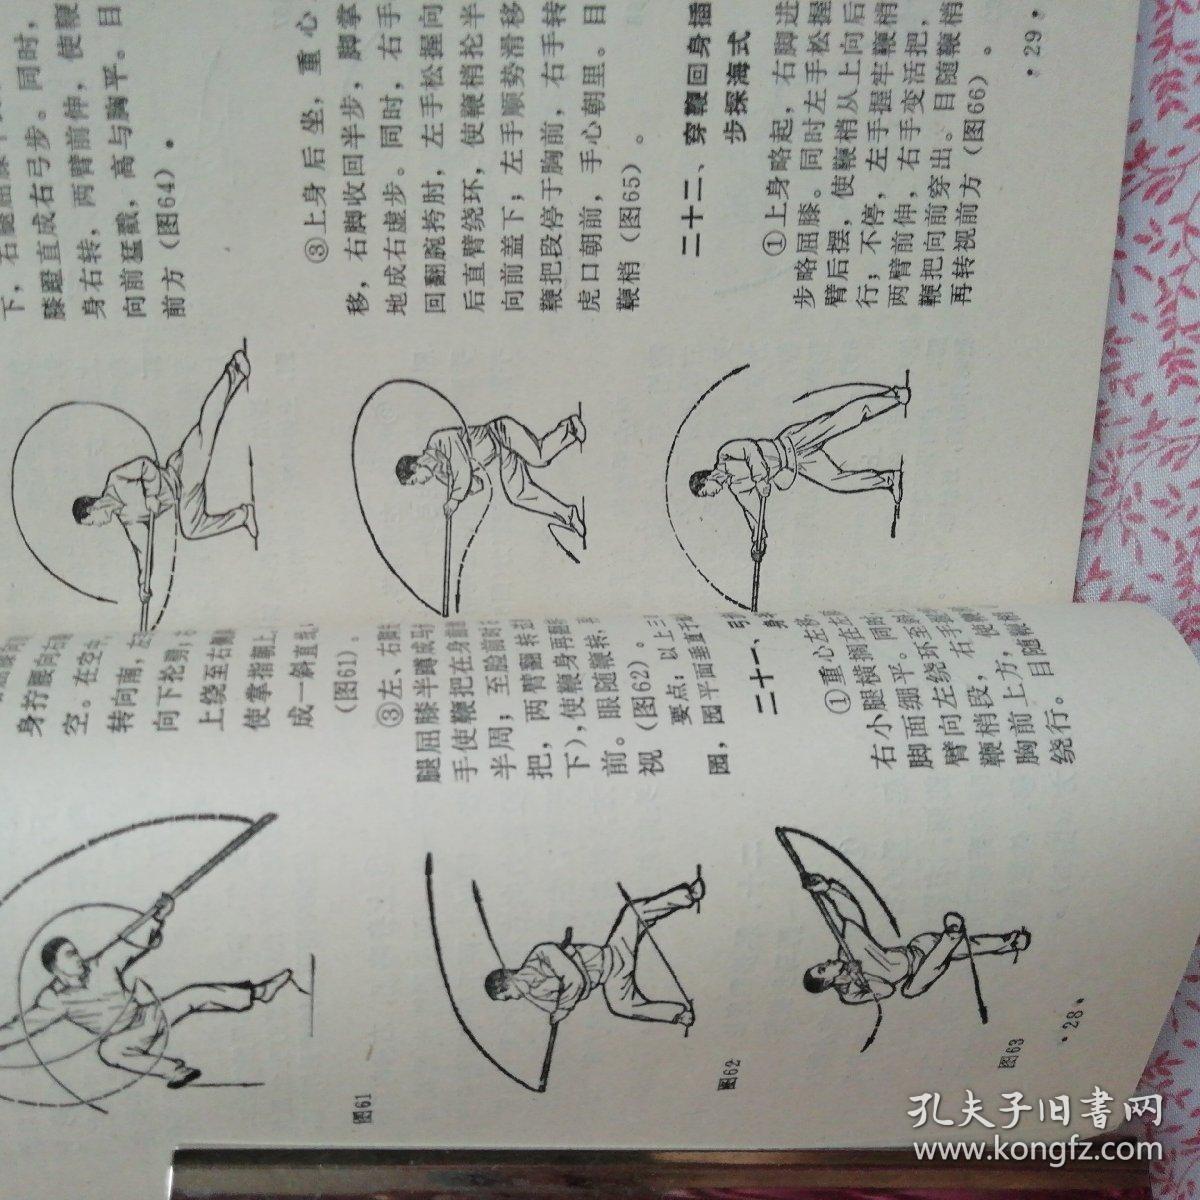 身拧腰向右
空。在空中
转向南，
向下抡劈；
上绕至右
使掌指朝上
成一斜直线
（图61）。
③左、右脚
腿屈膝半蹲成马
手使鞭把在身前
半周；至脸前时
把，两臂翻转
下），使鞭身再
前。眼随鞭转，
视（图62）。
要点：以上三
圆，园平面垂直于
二十一、
①重心左移，
右小腿横搁在左
脚面绷平。同时
臂向左绕环至
鞭梢段，右手
胸前上方，使鞭
绕行。目随鞭梢
图61
图62
图63
·28·
下，
膝蹬直成右弓步。同时，
身右转，两臂前伸，使鞭
向前猛戳，高与胸平。目
前方（图64）。
③上身后坐，重心
移，右脚收回半步，脚掌
地成右虚步。同时，右手
回翻腕挎肘，左手松握向
后直臂绕环，使鞭梢抡半
向前盖下；左手顺势滑移
鞭把段停于胸前，右手转
虎口朝前，手心朝里。目
鞭梢（图65）。
二十二、穿鞭回身插
步探海式
①上身略起，右脚进
步略屈膝。同时左手松握
臂后摆，使鞭梢从上向后
行；不停，左手握牢鞭梢
两臂前伸，右手变活把，
鞭把向前穿出。目随鞭梢
再转视前方（图66）。
·29·
孔夫子旧书网
www.kongfz.com